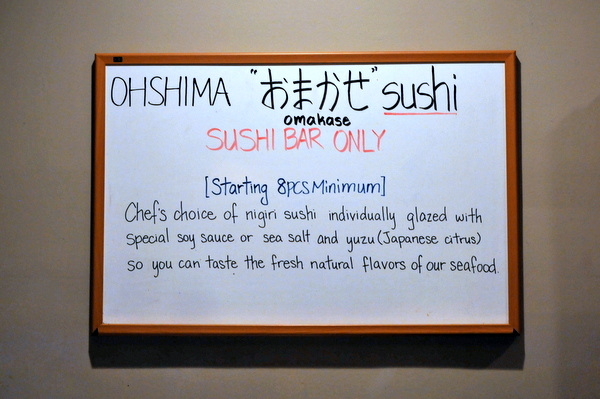 OHSHIMA "おまかせ" sushi
omakase
SUSHI BAR ONLY
[Starting 8PCS Minimum]
Chef's choice of nigiri sushi individually glazed with
special soy sauce or sea salt and yuzu (Japanese citrus)
so you can taste the fresh natural flavors of our seafood.